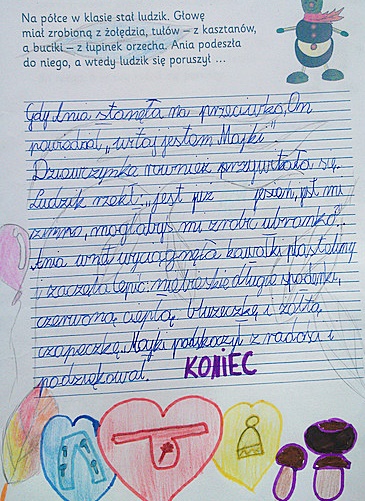 Na półce w klasie stał ludzik. Głowę
miał zrobioną z żołędzia, tułów – z kasztanów,
a buciki – z łupinek orzecha. Ania podeszła
do niego, a wtedy ludzik się poruszył ...
Gdy Ania stanęła na przeciwko, On
powiedział „witaj jestem Majki"
Dziewczynka również przywitała się.
Ludzik rzekł, „jest już jesień, jest mi
zimno, mogłabyś mi zrobić ubranko".
Ania wnet wyciągnęła kawałki plasteliny
i zaczęła lepić: niebieskie długie spodenki,
czerwoną ciepłą bluzeczkę i żółtą
czapeczkę. Majki podskoczył z radości i
podziękował. KONIEC